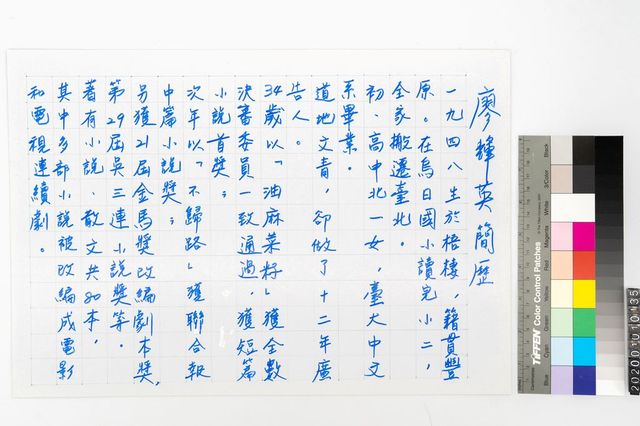 廖輝英簡歷
一九四八生於梧棲，籍貫豐
原。在烏日國小讀完小二，
全家搬遷臺北。
初、高中北一女，臺大中文
系畢業。
道地文青，卻做了十二年廣
告人。
34歲以「油麻菜籽」獲全數
決審委員一致通過，獲短篇
小說首獎；
次年以「不歸路」獲聯合報
中篇小說獎；
另獲21屆金馬獎改編劇本獎，
第29屆吳三連小說獎等。
著有小說、散文共80本，
其中多部小說被改編成電影
和電視連續劇。
TIFFEN Color Control Patches
Blue
Cyan
Green
Yellow
Red
Magenta
White
3/Color
Black
20200101035